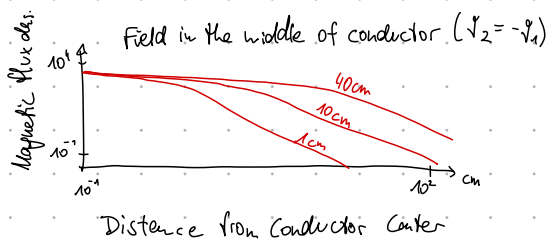 Field in the middle of conductor (ϑ₂ = -ϑ₁)
Magnetic flux des.
10⁴
10⁻¹
40cm
10cm
1cm
10⁻¹
10²
cm
Distence from conductor Center